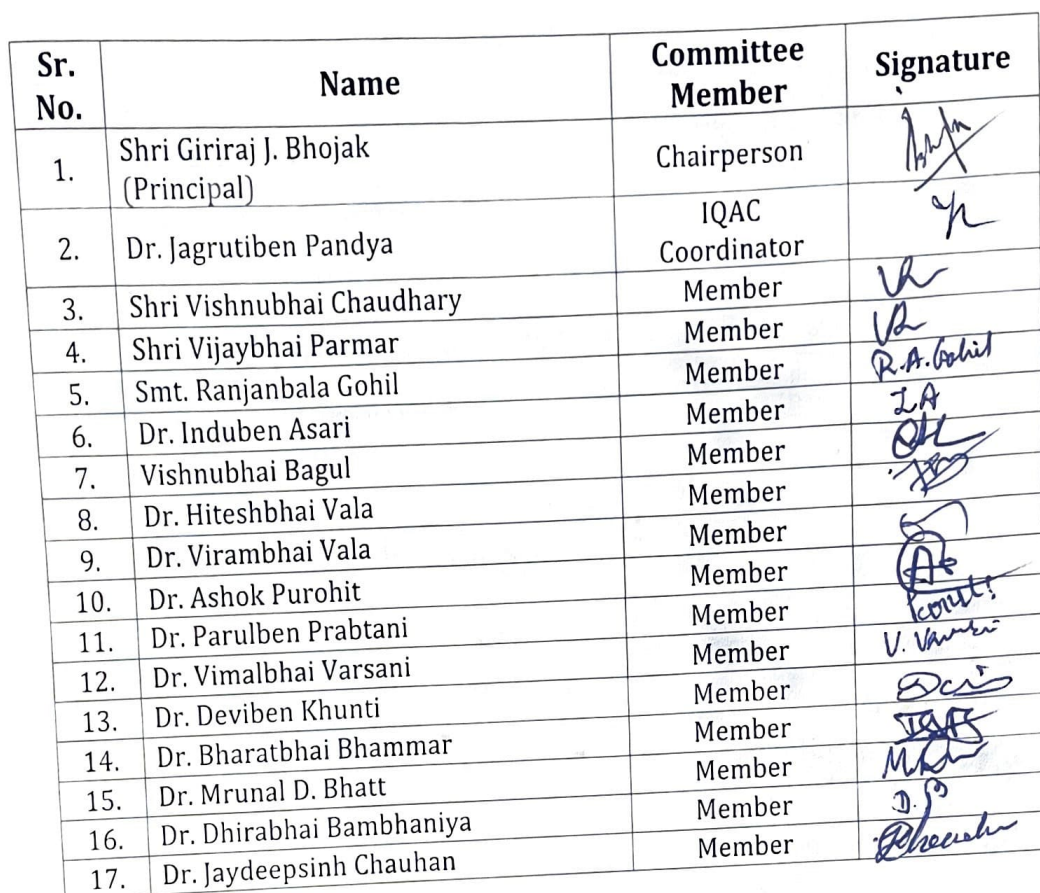 Sr. No. Name Committee Member Signature
1. Shri Giriraj J. Bhojak (Principal) Chairperson
2. Dr. Jagrutiben Pandya IQAC Coordinator
3. Shri Vishnubhai Chaudhary Member
4. Shri Vijaybhai Parmar Member
5. Smt. Ranjanbala Gohil Member R.A. Gohil
6. Dr. Induben Asari Member IA
7. Vishnubhai Bagul Member
8. Dr. Hiteshbhai Vala Member
9. Dr. Virambhai Vala Member
10. Dr. Ashok Purohit Member
11. Dr. Parulben Prabtani Member
12. Dr. Vimalbhai Varsani Member V. Varsani
13. Dr. Deviben Khunti Member
14. Dr. Bharatbhai Bhammar Member
15. Dr. Mrunal D. Bhatt Member
16. Dr. Dhirabhai Bambhaniya Member D.B
17. Dr. Jaydeepsinh Chauhan Member